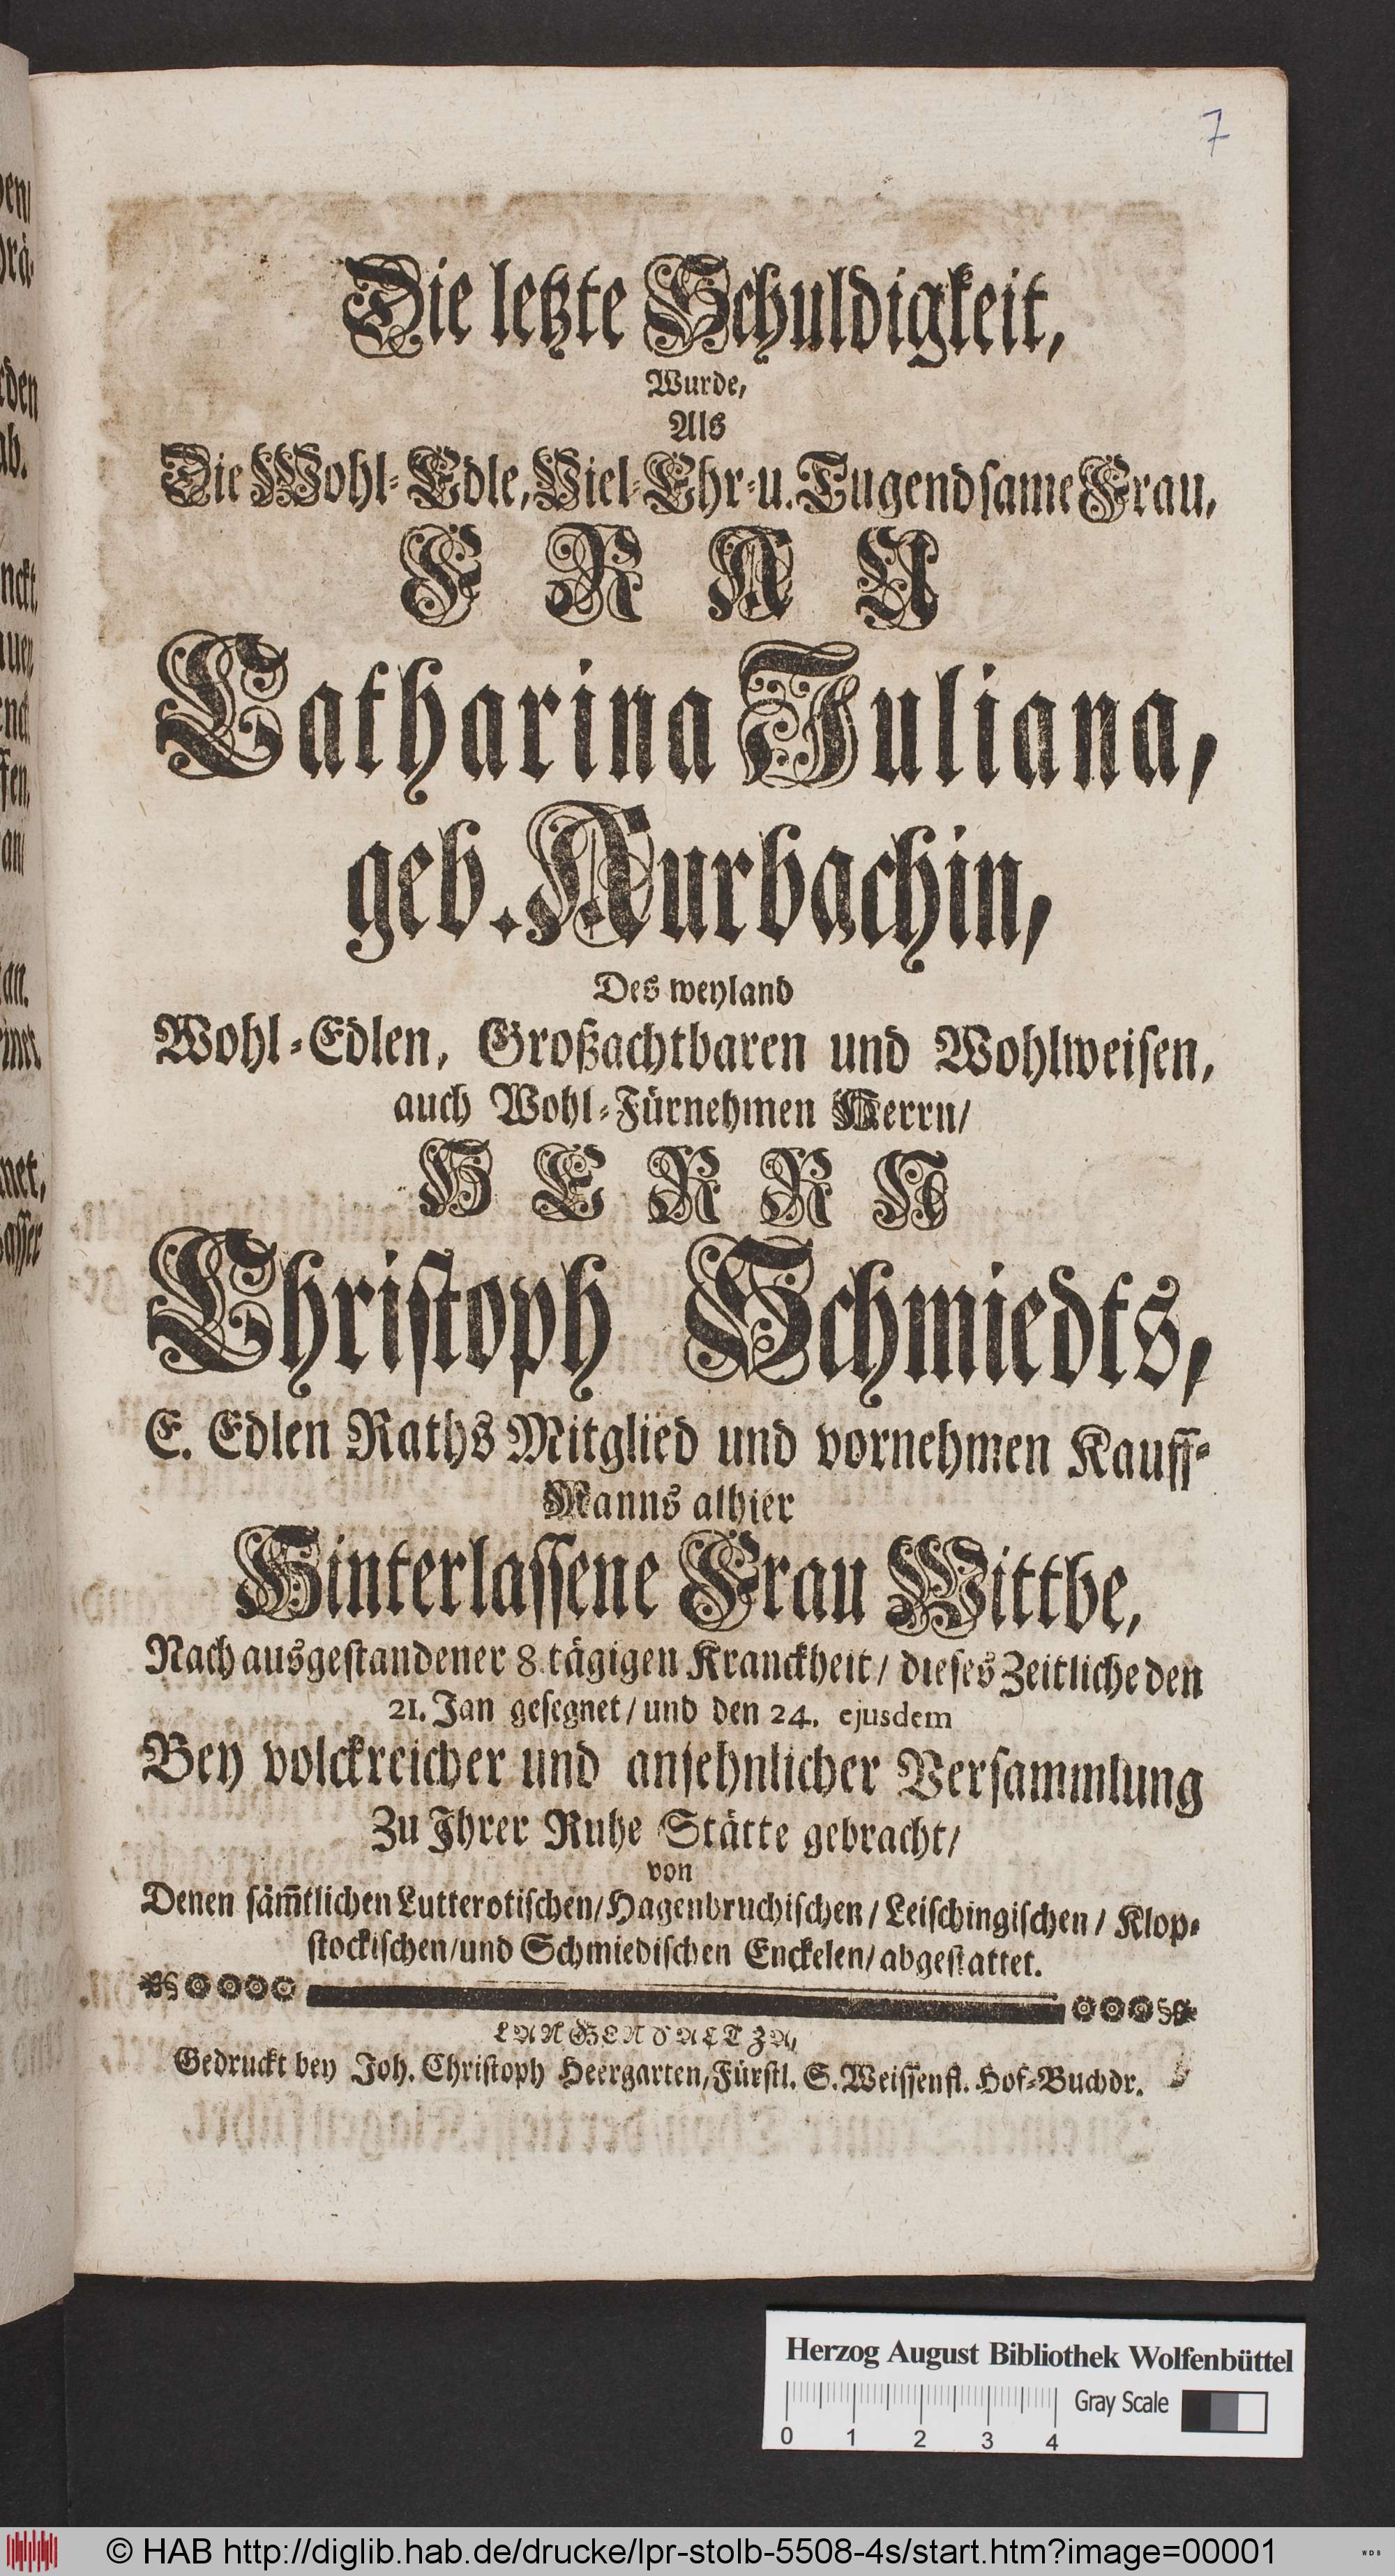 7
Die letzte Schuldigkeit,
Wurde,
Als
Die Wohl-Edle, Viel-Ehr-u. Tugendsame Frau,
FRAU
Catharina Juliana,
geb. Aurbachin,
Des weyland
Wohl-Edlen, Großachtbaren und Wohlweisen,
auch Wohl-Fürnehmen Herrn/
HERRN
Christoph Schmiedts,
E. Edlen Raths Mitglied und vornehmen Kauff-
Manns alhier
Hinterlassene Frau Wittbe,
Nach ausgestandener 8. tägigen Kranckheit / dieses Zeitliche den
21. Jan gesegnet / und den 24. ejusdem
Bey volckreicher und ansehnlicher Versammlung
Zu Ihrer Ruhe Stätte gebracht/
von
Denen säm̃tlichen Lutterotischen/Hagenbruchischen / Leischingischen / Klop-
stockischen/und Schmiedischen Enckelen/abgestattet.
LANGENSALTZA,
Gedruckt bey Joh. Christoph Heergarten, Fürstl. S. Weissenfl. Hof-Buchdr.
Herzog August Bibliothek Wolfenbüttel
Gray Scale
0 1 2 3 4
© HAB http://diglib.hab.de/drucke/lpr-stolb-5508-4s/start.htm?image=00001